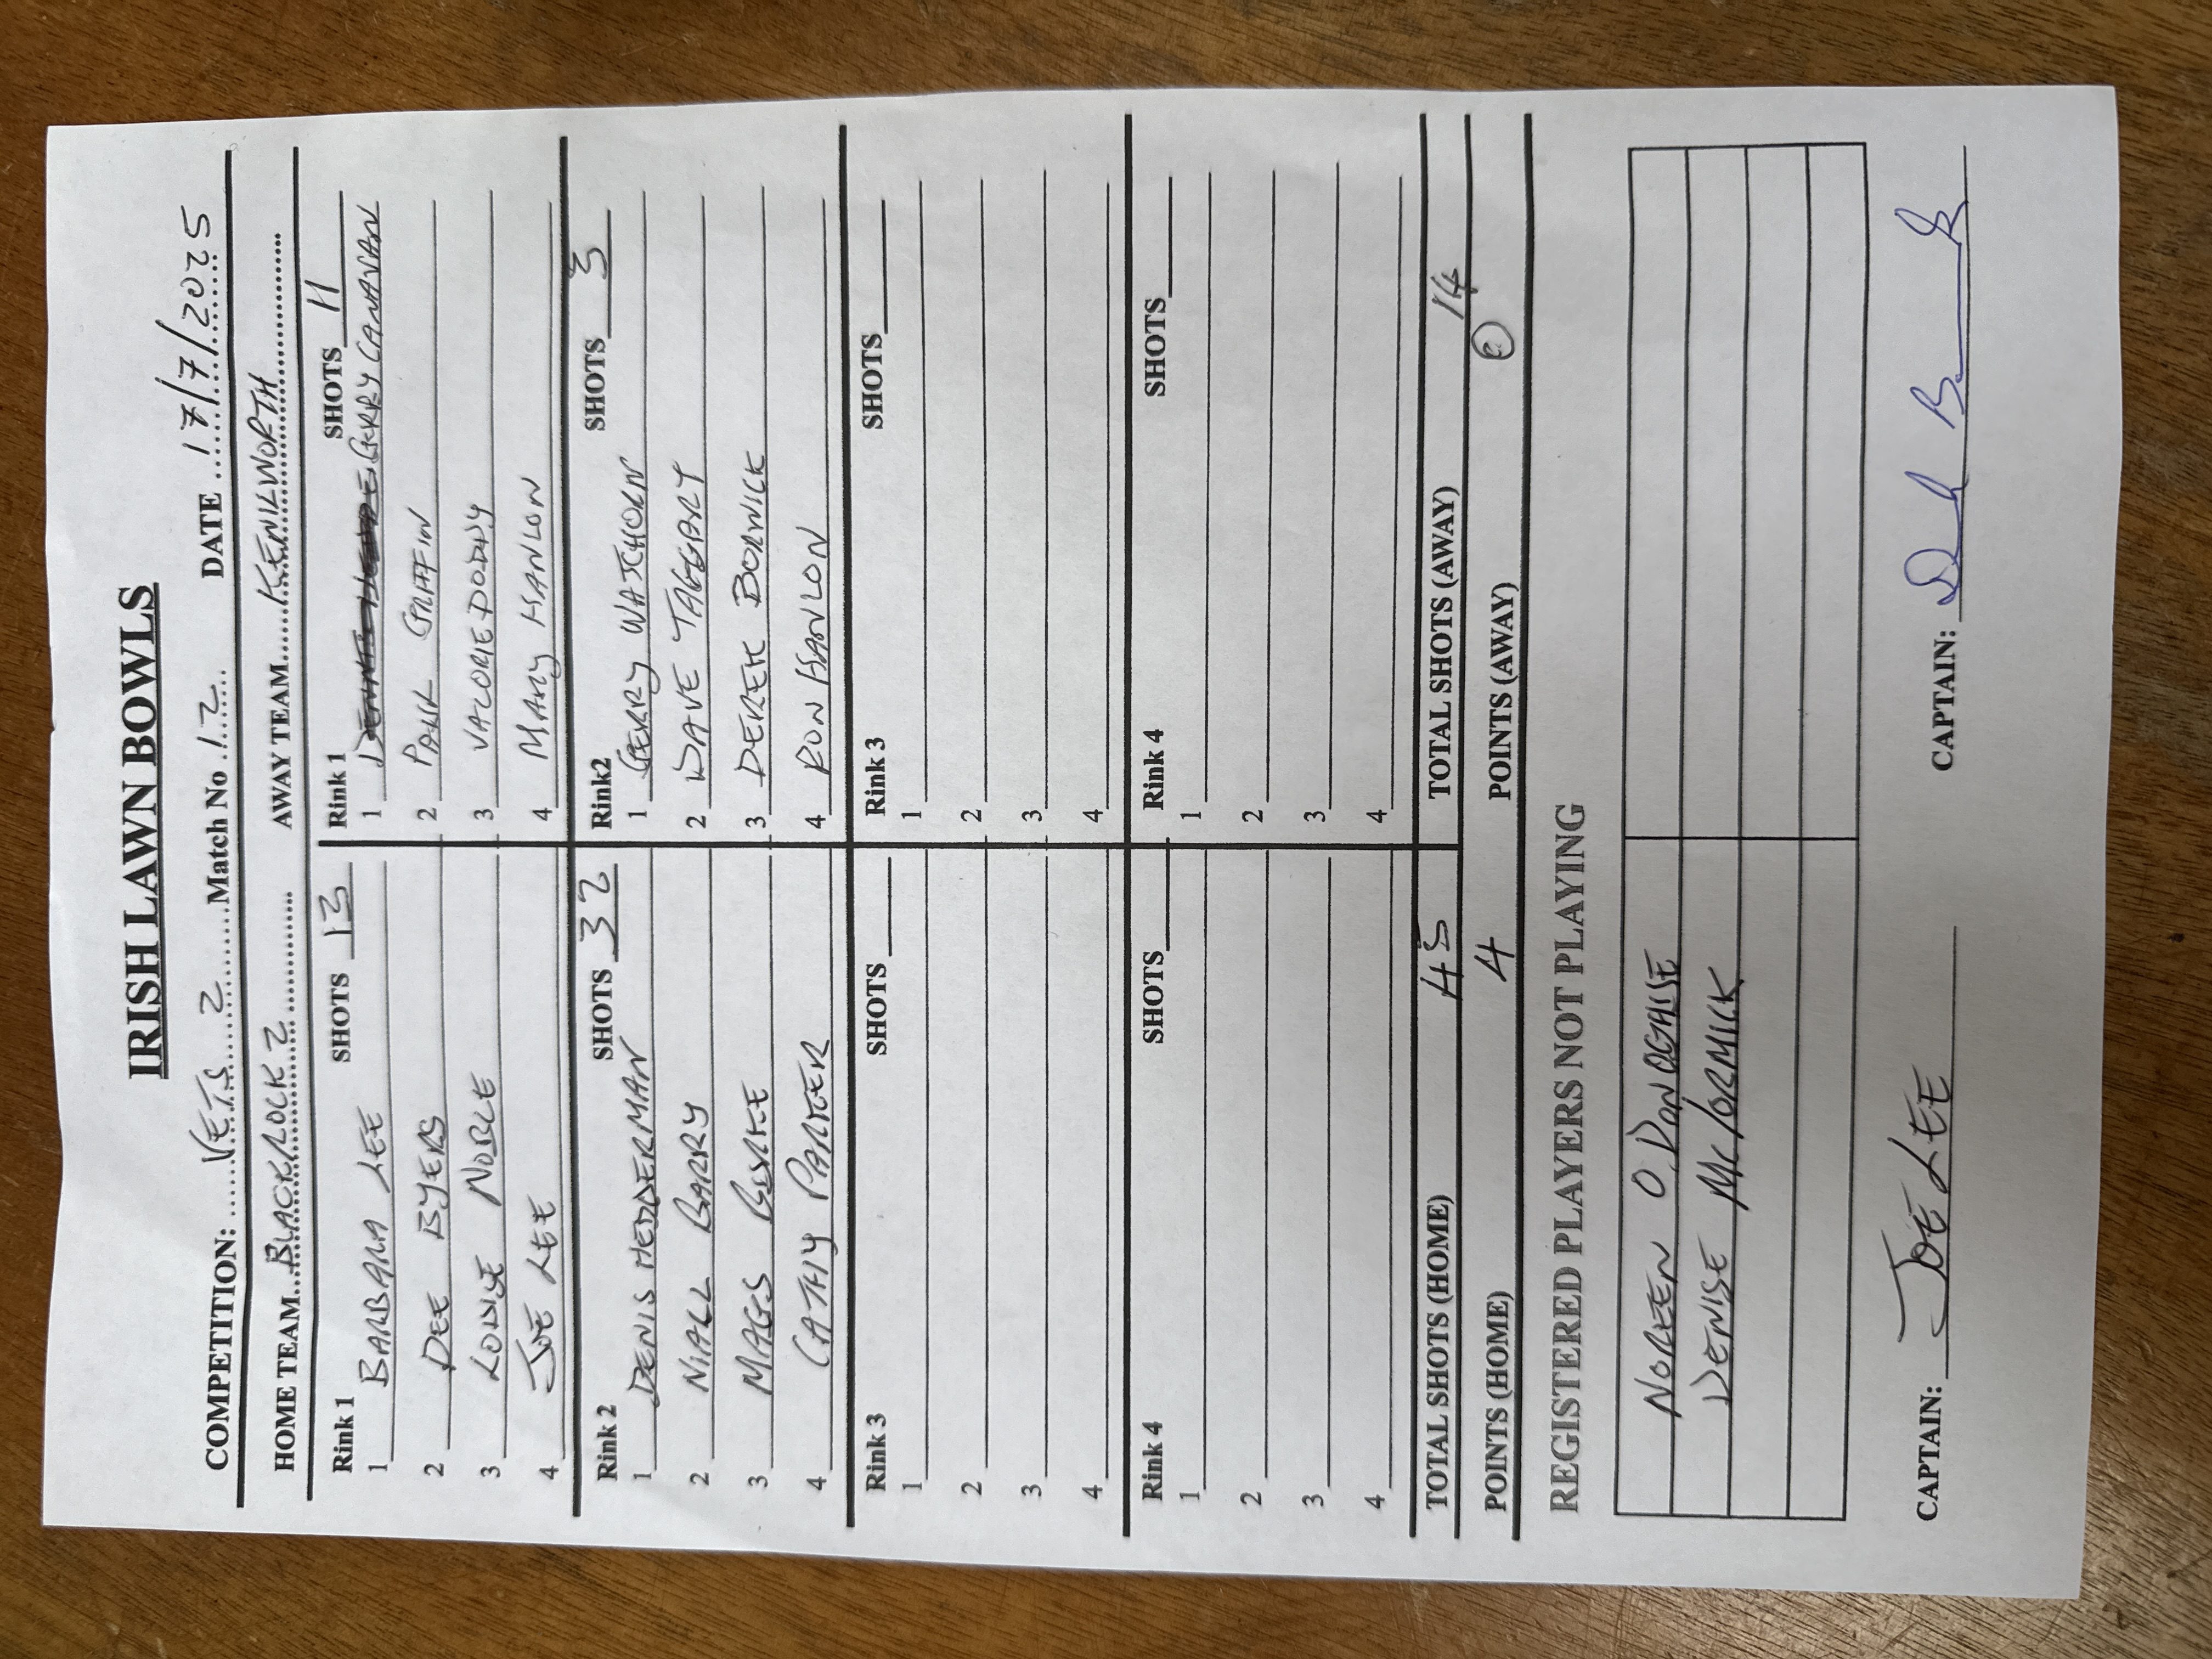 IRISH LAWN BOWLS
COMPETITION: VETS 2 Match No 12 DATE 17/7/2025
HOME TEAM BLACKROCK 2 AWAY TEAM KENILWORTH
Rink 1 SHOTS 13 Rink 1 SHOTS 11
1 BARBARA LEE 1 GERRY CANAVAN
2 DEE BYERS 2 PAUL GRIFFIN
3 LOUISE NOBLE 3 VALORIE DODDY
4 JOE LEE 4 MARY HANLON
Rink 2 SHOTS 32 Rink2 SHOTS 3
1 DENIS HEDDERMAN 1 GERRY WATCHORN
2 NIALL BARRY 2 DAVE TAGGART
3 MAGS BURKE 3 DEREK BORWICK
4 CATHY PARKER 4 RON HANLON
Rink 3 SHOTS Rink 3 SHOTS
1 1
2 2
3 3
4 4
Rink 4 SHOTS Rink 4 SHOTS
1 1
2 2
3 3
4 4
TOTAL SHOTS (HOME) 45 TOTAL SHOTS (AWAY) 14
POINTS (HOME) 4 POINTS (AWAY)
REGISTERED PLAYERS NOT PLAYING
NOREEN O DONOGHUE
DENISE McCORMICK
CAPTAIN: JOE LEE CAPTAIN: